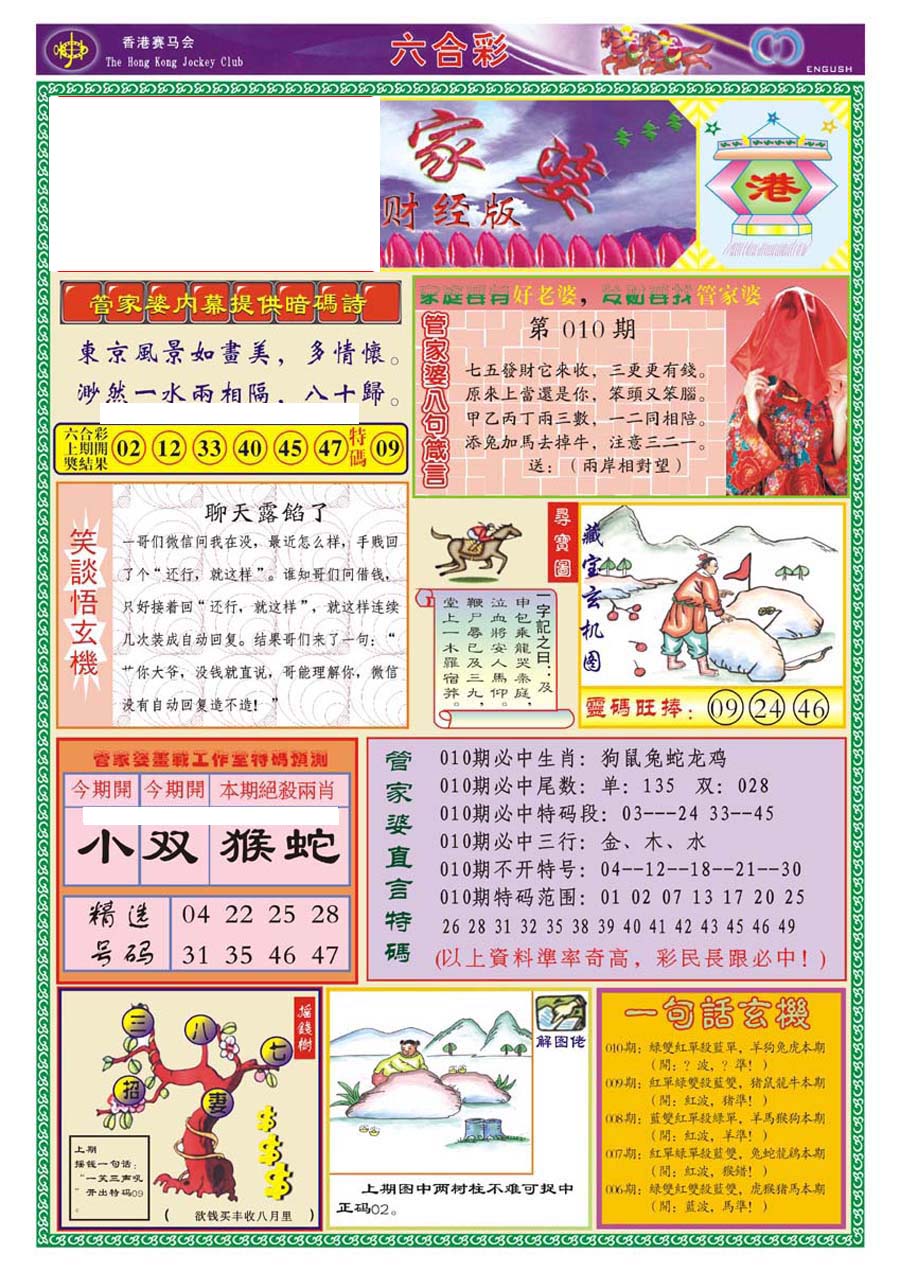 香港赛马会
The Hong Kong Jockey Club
六合彩
ENGUSH
家婆
财经版
港
管家婆内幕提供暗碼詩
東京風景如畫美，多情懷。
渺然一水兩相隔，八十歸。
六合彩上期開獎結果 02 12 33 40 45 47 特碼 09
家庭要有好老婆，发财要找管家婆
管家婆八句箴言
第 010 期
七五發財它來收，三更更有錢。
原來上當還是你，笨頭又笨腦。
甲乙丙丁兩三數，一二同相陪。
添兔加馬去掉牛，注意三二一。
送：（兩岸相對望）
笑談悟玄機
聊天露餡了
一哥们微信问我在没，最近怎么样，手贱回
了个“还行，就这样”。谁知哥们问借钱，
只好接着回“还行，就这样”，就这样连续
几次装成自动回复。结果哥们来了一句：“
艹你大爷，没钱就直说，哥能理解你，微信
没有自动回复造不造！”
尋寶圖
一字記之曰：及
申包乘龍哭秦庭，
泣血將安人馬仰。
鞭尸辱已及三九，
堂上一木羅宿莽。
藏宝玄机图
靈碼旺捧：09 24 46
管家婆董戟工作室特碼預測
今期開 今期開 本期絕殺兩肖
小 双 猴蛇
精选号码
04 22 25 28
31 35 46 47
管家婆直言特碼
010期必中生肖：狗鼠兔蛇龙鸡
010期必中尾数：单：135 双：028
010期必中特码段：03---24 33--45
010期必中三行：金、木、水
010期不开特号：04--12--18--21--30
010期特码范围：01 02 07 13 17 20 25
26 28 31 32 35 38 39 40 41 42 43 45 46 49
(以上資料準率奇高，彩民長跟必中！)
摇錢樹
三 八 七
招 妻
上期
摇钱一句话：
“一笑三声吼
”开出特码09
。
( 欲钱买丰收八月里 )
解图佬
上期图中两树柱不难可捉中
正码02。
一句話玄機
010期：綠雙紅單殺藍單，羊狗兔虎本期
（開：？波，？準！）
009期：紅單綠雙殺藍雙，豬鼠龍牛本期
（開：紅波，豬準！）
008期：藍雙紅單殺綠單，羊馬猴狗本期
（開：紅波，羊準！）
007期：紅單綠單殺藍雙，兔蛇龍鷄本期
（開：紅波，猴錯！）
006期：綠雙紅雙殺藍雙，虎猴豬馬本期
（開：藍波，馬準！）